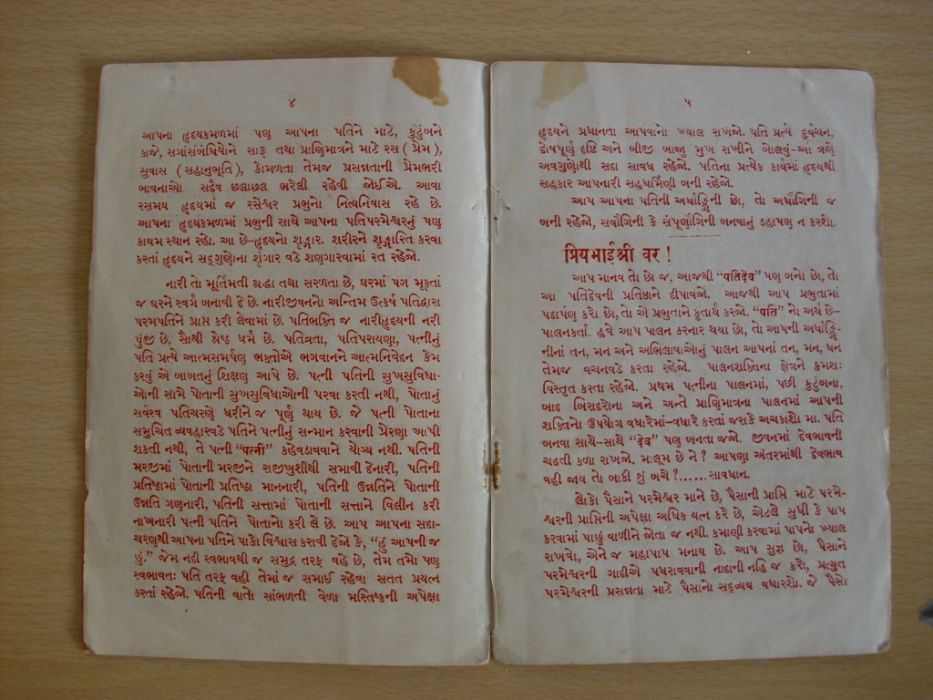 ૪
આપના હૃદયકમળમાં પણ આપના પતિને માટે, કુટુંબને
કાજે, સગાંસંબંધિયોને સારૂ તથા પ્રાણિમાત્રને માટે રસ ( પ્રેમ ),
સુવાસ ( સહાનુભૂતિ ), કોમળતા તેમજ પ્રસન્નતાની પ્રેમભરી
ભાવનાઓ સદૈવ છલાછલ ભરેલી રહેવી જોઈએ. આવા
રસમય હૃદયમાં જ રસેશ્વર પ્રભુનો નિત્યનિવાસ રહે છે.
આપના હૃદયકમળમાં પ્રભુની સાથે આપના પતિપરમેશ્વરનું પણ
કાયમ સ્થાન રહો. આ છે-હૃદયનો શૃઙ્ગાર. શરીરને શૃઙ્ગારિત કરવા
કરતાં હૃદયને સદ્ગુણોના શૃંગાર વડે શણગારવામાં રત રહેજો.
નારી તો મૂર્તિમતી શ્રદ્ધા તથા સરળતા છે, ઘરમાં પગ મૂકતાં
જ ઘરને સ્વર્ગ બનાવી દે છે. નારીજીવનનો અન્તિમ ઉત્કર્ષ પતિદ્વારા
પરમપતિને પ્રાપ્ત કરી લેવામાં છે. પતિભક્તિ જ નારીહૃદયની નરી
પુંજી છે, સૌથી શ્રેષ્ઠ ધર્મ છે. પતિવ્રતા, પતિપરાયણા, પત્નીનું
પતિ પ્રત્યે આત્મસમર્પણ ભક્તોએ ભગવાનને આત્મનિવેદન કેમ
કરવું એ બાબતનું શિક્ષણ આપે છે. પત્ની પતિની સુખસુવિધા-
ઓની સામે પોતાની સુખસુવિધાઓની પરવા કરતી નથી, પોતાનું
સર્વસ્વ પતિચરણે ધરીને જ પૂર્ણ થાય છે. જે પત્ની પોતાના
સમુચિત વ્યવહારવડે પતિને પત્નીનું સન્માન કરવાની પ્રેરણા આપી
શકતી નથી, તે પત્ની “પત્ની” કહેવડાવવાને યોગ્ય નથી. પતિની
મરજીમાં પોતાની મરજીને રાજીખુશીથી સમાવી દેનારી, પતિની
પ્રતિષ્ઠામાં પોતાની પ્રતિષ્ઠા માનનારી, પતિની ઉન્નતિને પોતાની
ઉન્નતિ ગણુનારી, પતિની સત્તામાં પોતાની સત્તાને વિલીન કરી
નાખનારી પત્ની પતિને પોતાનો કરી લે છે. આપ આપના સદા-
ચરણુથી આપના પતિને પાકો વિશ્વાસ કરાવી દેજો કે, “હું આપની જ
છું.” જેમ નદી સ્વભાવથી જ સમુદ્ર તરફ વહે છે, તેમ તમો પણ
સ્વભાવતઃ પતિ તરફ વહી તેમાં જ સમાઈ રહેવા સતત પ્રયત્ન
કરતાં રહેજો. પતિની વાતો સાંભળતી વેળા મસ્તિષ્કની અપેક્ષા
૫
હૃદયને પ્રધાનતા આપવાનો ખ્યાલ રાખજો. પતિ પ્રત્યે દુર્વચન,
દોષપૂર્ણ દૃષ્ટિ અને બીજી બાજુ મુખ રાખીને બોલવું-આ ત્રણે
અવગુણોથી સદા સાવધ રહેજો. પતિના પ્રત્યેક કાર્યમાં હૃદયથી
સહકાર આપનારી સહધર્મિણી બની રહેજો.
આપ આપના પતિની અર્ધાઙ્ગિની છો, તો અર્ધાંગિની જ
બની રહેજો, સર્વાંગિની કે સંપૂર્ણાંગિની બનવાનું ડહાપણ ન કરશો.
પ્રિયભાઈશ્રી વર !
આપ માનવ તો છો જ, આજથી “પતિદેવ” પણ બનો છો, તો
આ પતિદેવની પ્રતિષ્ઠાને દીપાવજો. આજથી આપ પ્રભુતામાં
પદાર્પણ કરો છો, તો એ પ્રભુતાને કૃતાર્થ કરજો. “પતિ” નો અર્થ છે-
પાલનકર્તા. હવે આપ પાલન કરનાર થયા છો, તો આપની અર્ધાઙ્ગિ-
નીનાં તન, મન અને અભિલાષાઓનું પાલન આપનાં તન, મન, ધન
તેમજ વચનવડે કરતા રહેજો. પાલનશક્તિના ક્ષેત્રને ક્રમશઃ
વિસ્તૃત કરતા રહેજો. પ્રથમ પત્નીના પાલનમાં, પછી કુટુંબના,
બાદ બિરાદરોના અને અન્તે પ્રાણિમાત્રના પાલનમાં આપની
શક્તિનો ઉપયોગ વધારેમાં-વધારે કરતાં જરાકે અચકાશો મા. પતિ
બનવા સાથે-સાથે “દેવ” પણ બનતા જજો. જીવનમાં દેવભાવની
ચઢતી કળા રાખજો. માલૂમ છે ને ? આપણા અંતરમાંથી દેવભાવ
વહી જાય તો બાકી શું બચે ?......સાવધાન.
લોકો પૈસાને પરમેશ્વર માને છે, પૈસાની પ્રાપ્તિ માટે પરમે-
શ્વરની પ્રાપ્તિની અપેક્ષા અધિક યત્ન કરે છે, એટલે સુધી કે પાપ
કરવામાં પાછું વાળીને જોતા જ નથી. કમાણી કરવામાં પાપનો ખ્યાલ
રાખવો, એને જ મહાપાપ મનાય છે. આપ સુજ્ઞ છો, પૈસાને
પરમેશ્વરની ગાદીએ પધરાવવાની નાદાની નહિ જ કરો, પ્રત્યુત
પરમેશ્વરની પ્રસન્નતા માટે પૈસાનો સદ્વ્યય વધારશો. જે પૈસો